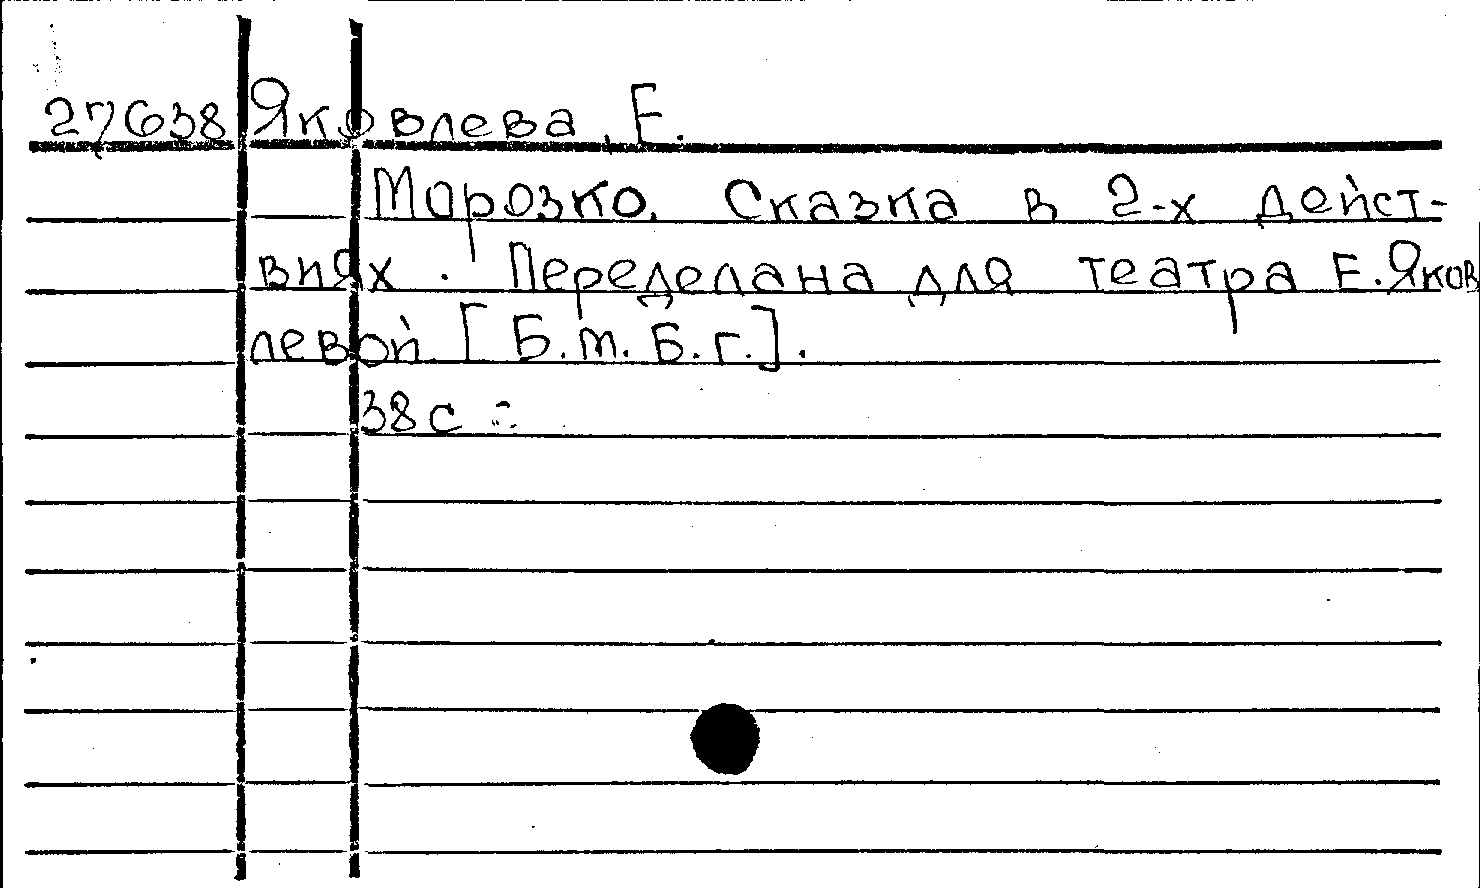 27638 Яковлева, Е.
Морозко. Сказка в 2-х дейст-
виях. Переделана для театра Е.Яков
левой [Б.т. Б.г.].
38с.